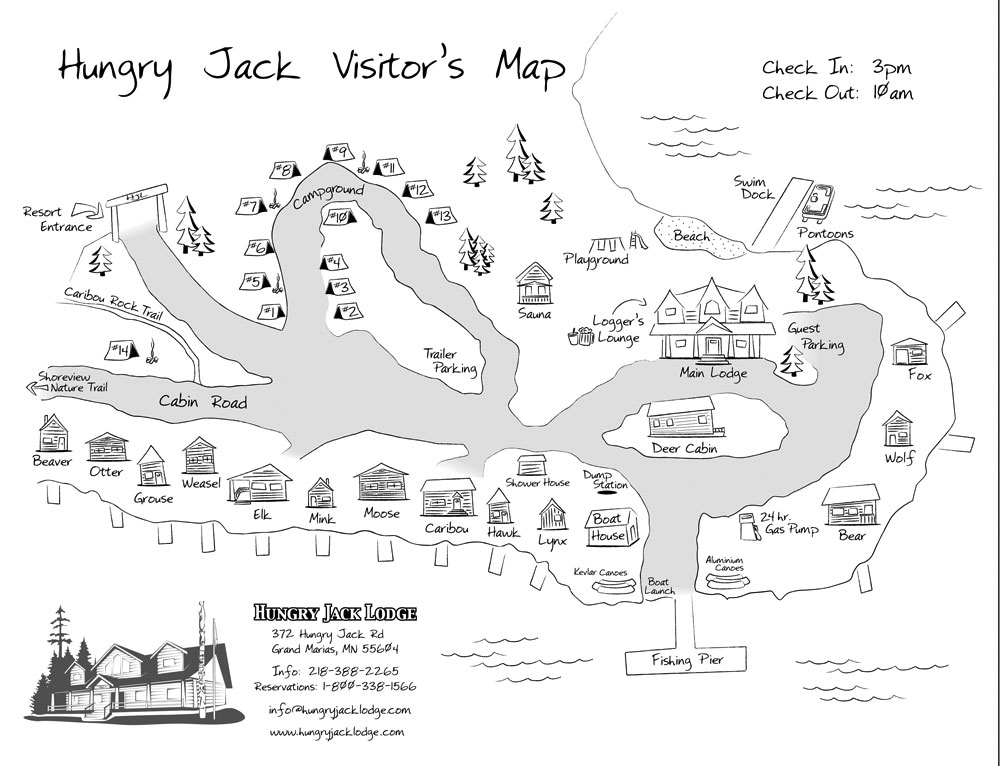 Hungry Jack Visitor's Map
Check In: 3pm
Check Out: 10am
#9
#8
#11
Campground
#12
#7
#10
#13
Swim
Dock
6
Pontoons
Resort
Entrance
Beach
#6
#4
Playground
#5
#3
Sauna
Caribou Rock Trail
#1
#2
Logger's
Lounge
Guest
Parking
#14
Trailer
Parking
Main Lodge
Fox
Shoreview
Nature Trail
Cabin Road
Deer Cabin
Wolf
Beaver
Otter
Grouse
Weasel
Elk
Mink
Moose
Caribou
Hawk
Lynx
Shower House
Dump
Station
Boat
House
24 hr.
Gas Pump
Bear
Kevlar Canoes
Boat
Launch
Aluminium
Canoes
Fishing Pier
Hungry Jack Lodge
372 Hungry Jack Rd
Grand Marias, MN 55604
Info: 218-388-2265
Reservations: 1-800-338-1566
info@hungryjacklodge.com
www.hungryjacklodge.com